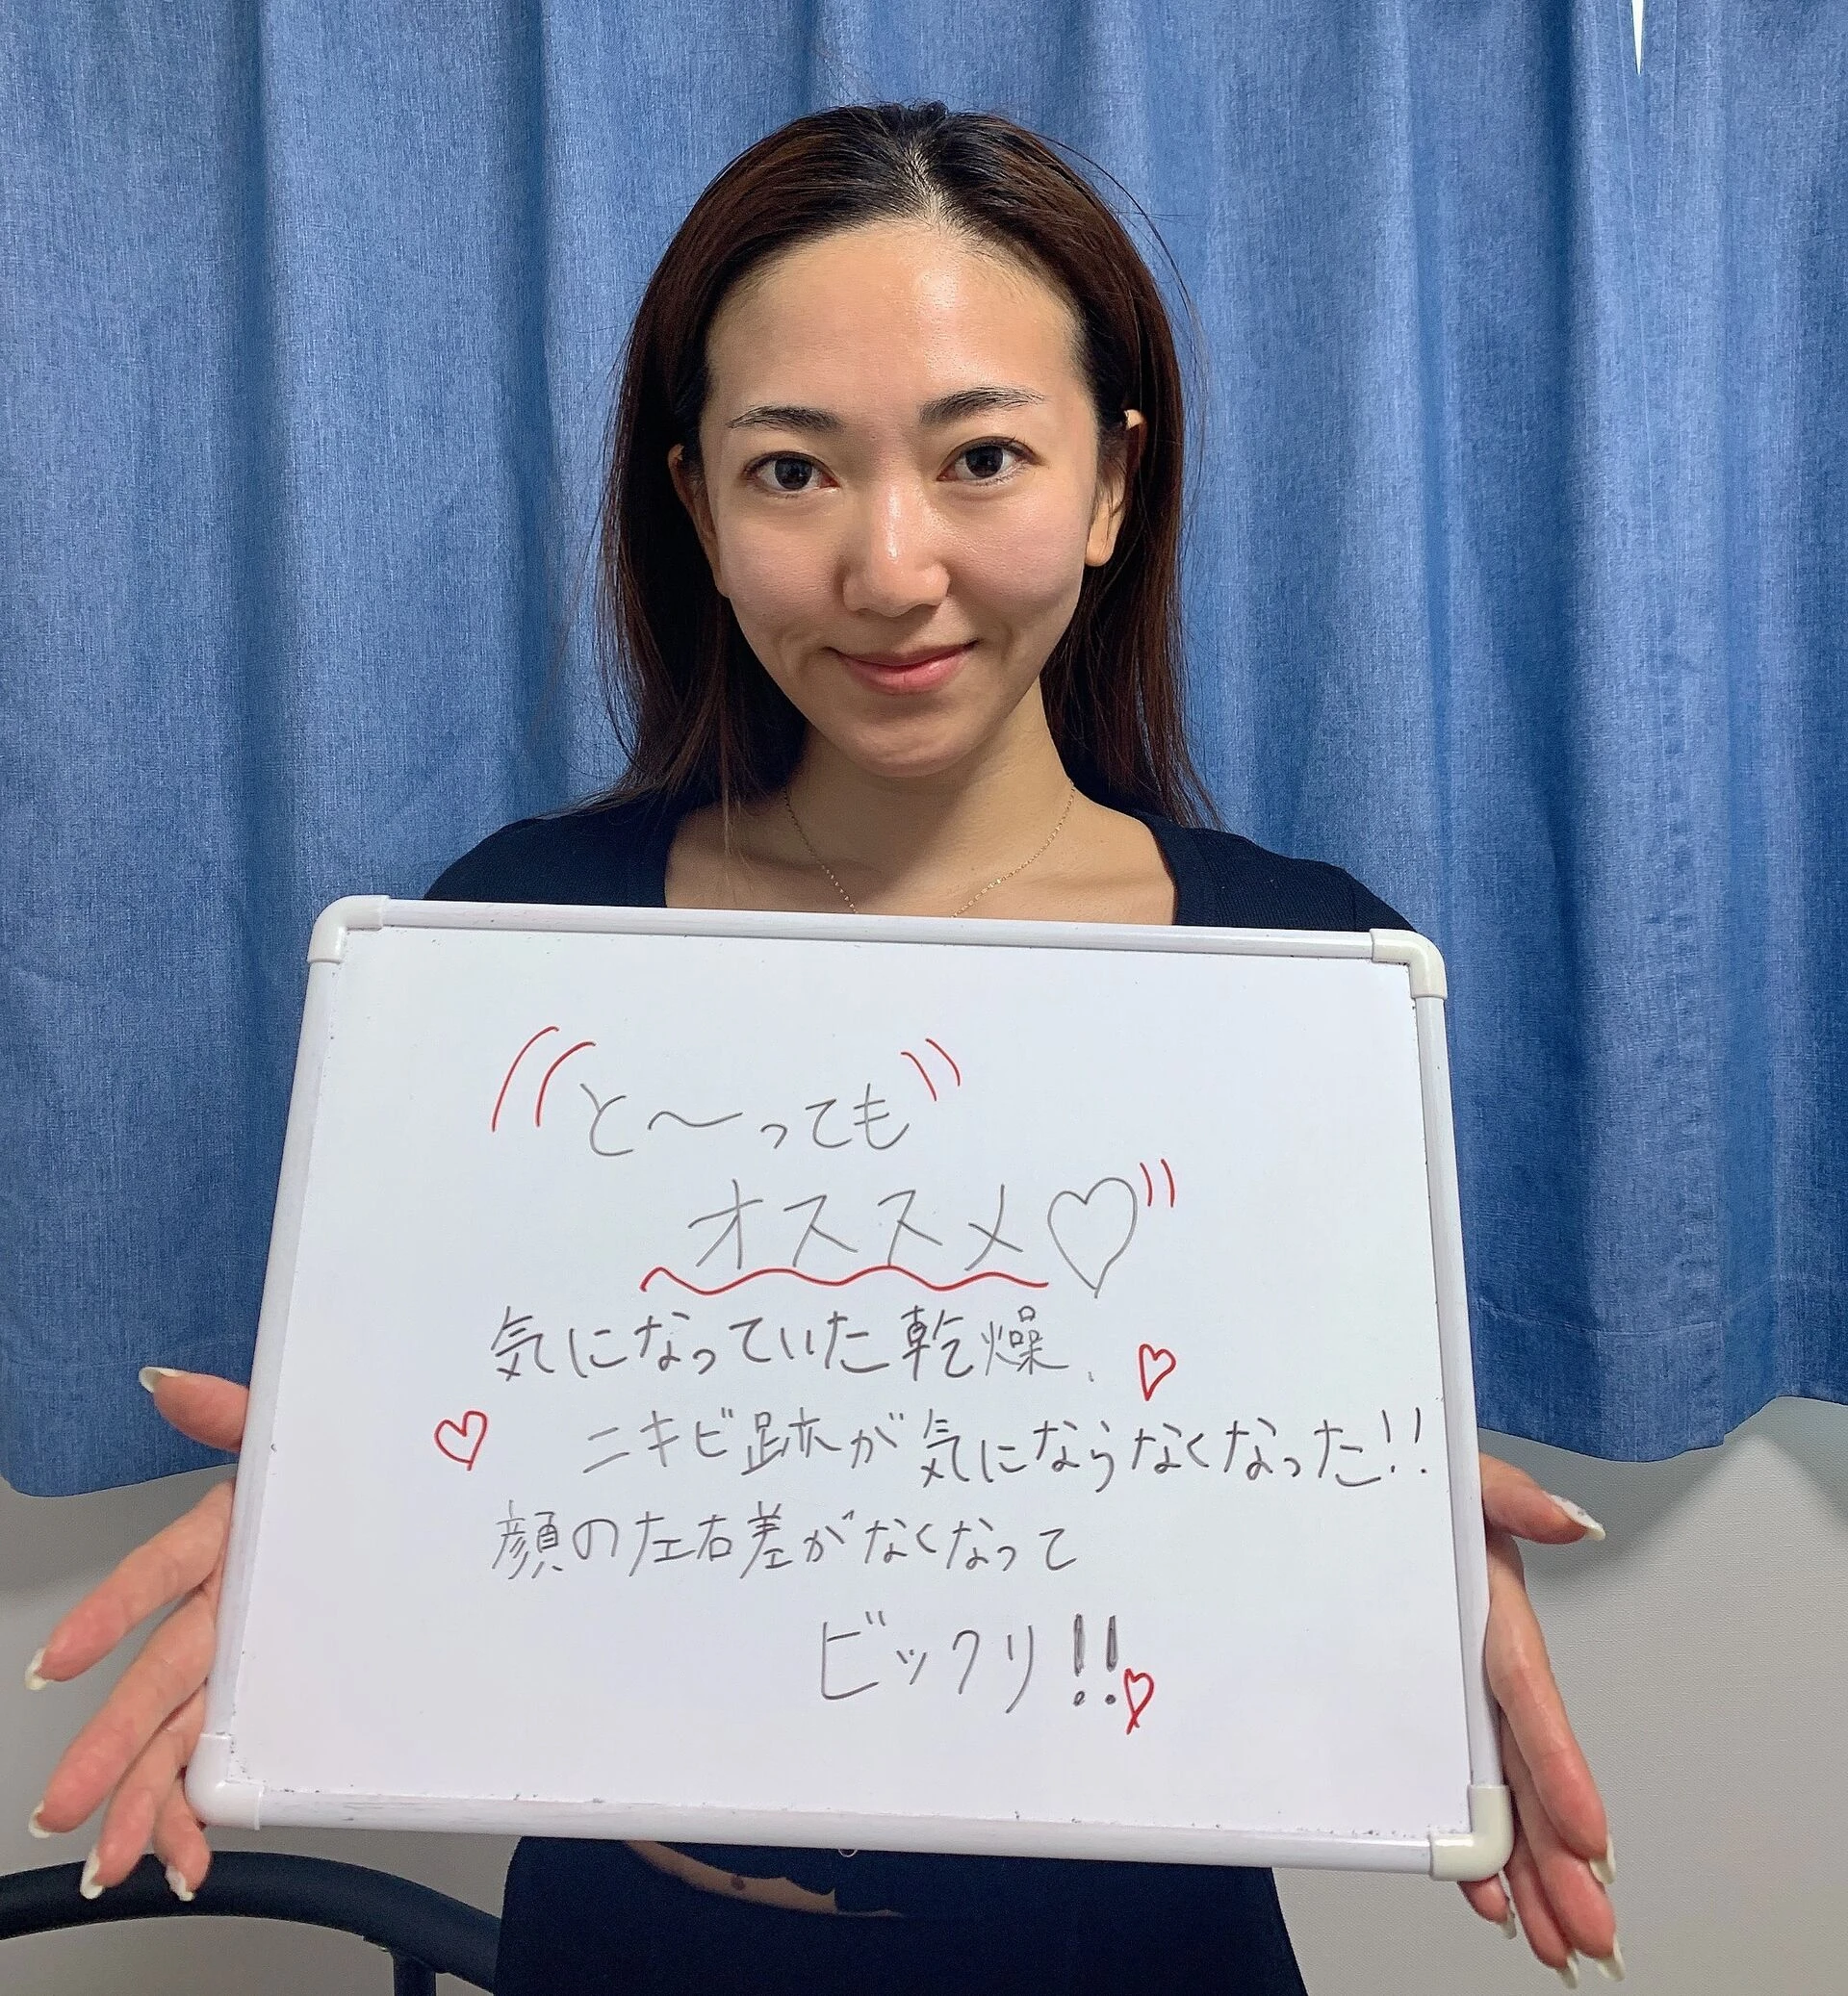 と〜っても
オススメ♡
気になっていた乾燥、
ニキビ跡が気にならなくなった!!
顔の左右差がなくなって
ビックリ!!